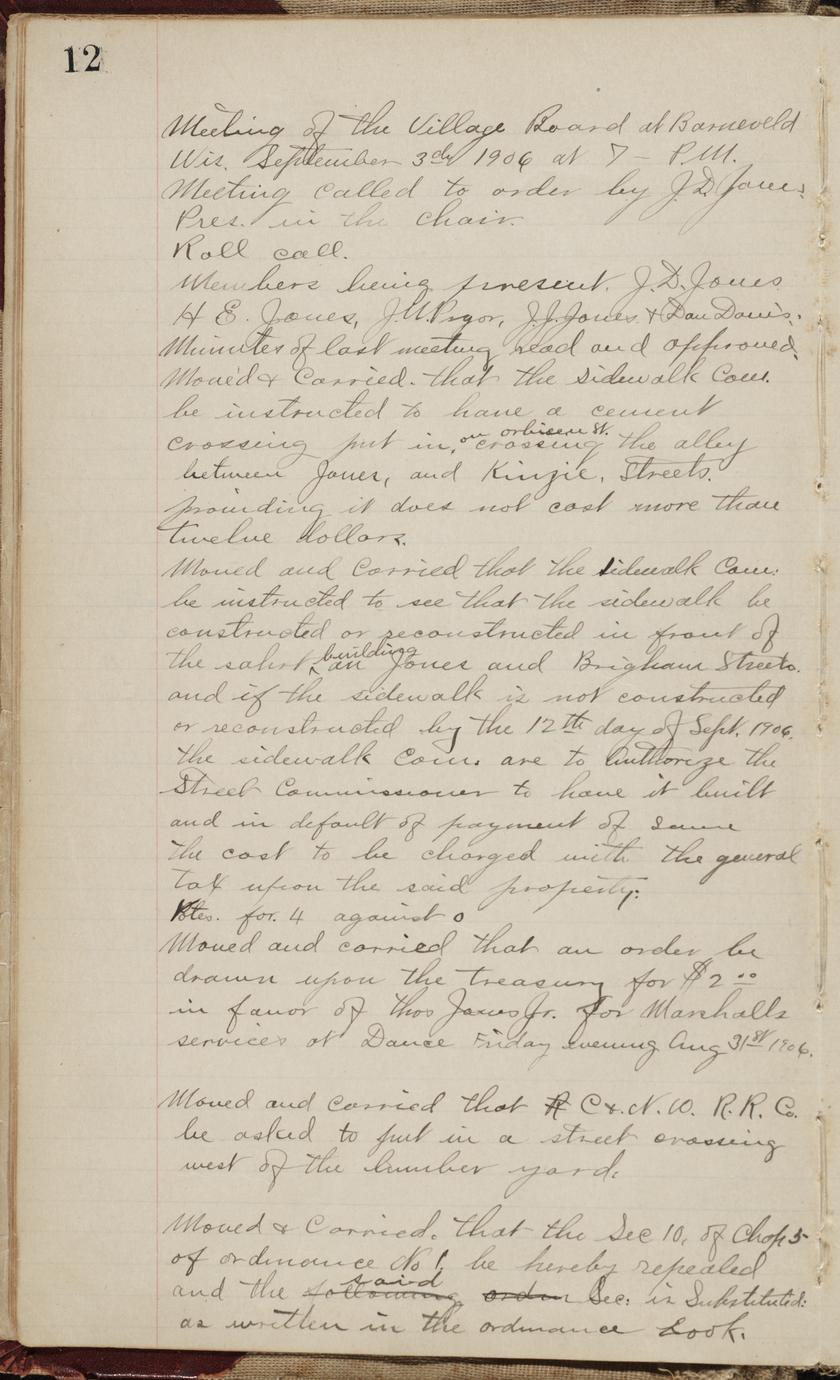 12
Meeting of the Village Board at Barneveld
Wis. September 3rd 1906 at 7 - P.M.
Meeting called to order by J.D. Jones
Pres. in the chair.
Roll call.
Members being present. J.D. Jones
H E. Jones, J.U. Pryor, J.J. Jones & Dan Davis.
Minutes of last meeting read and approved.
Moved & Carried. that the Sidewalk Com.
be instructed to have a cement
on St.
crossing put in, crossing the alley
between Jones, and Kinzie, Streets.
providing it does not cost more than
twelve dollars.
Moved and Carried that the Sidewalk Com.
be instructed to see that the sidewalk be
constructed or reconstructed in front of
building
the on Jones and Brigham Streets.
and if the sidewalk is not constructed
or reconstructed by the 12th day of Sept. 1906.
the sidewalk Com. are to Authorize the
Street Commissioner to have it built
and in default of payment of same
the cost to be charged with the general
tax upon the said property.
Votes. for. 4 against 0
Moved and carried that an order be
drawn upon the treasury for $2.00
in favor of Thos Jones Jr. for Marshalls
services at Dance Friday evening Aug 31st 1906.
Moved and carried that C & N. W. R. R. Co.
be asked to put in a street crossing
west of the lumber yard.
Moved & Carried. that the Sec 10, of Chap 5
of ordinance No 1, be hereby repealed
said
and the following order Sec. is Substituted:
as written in the ordinance book.